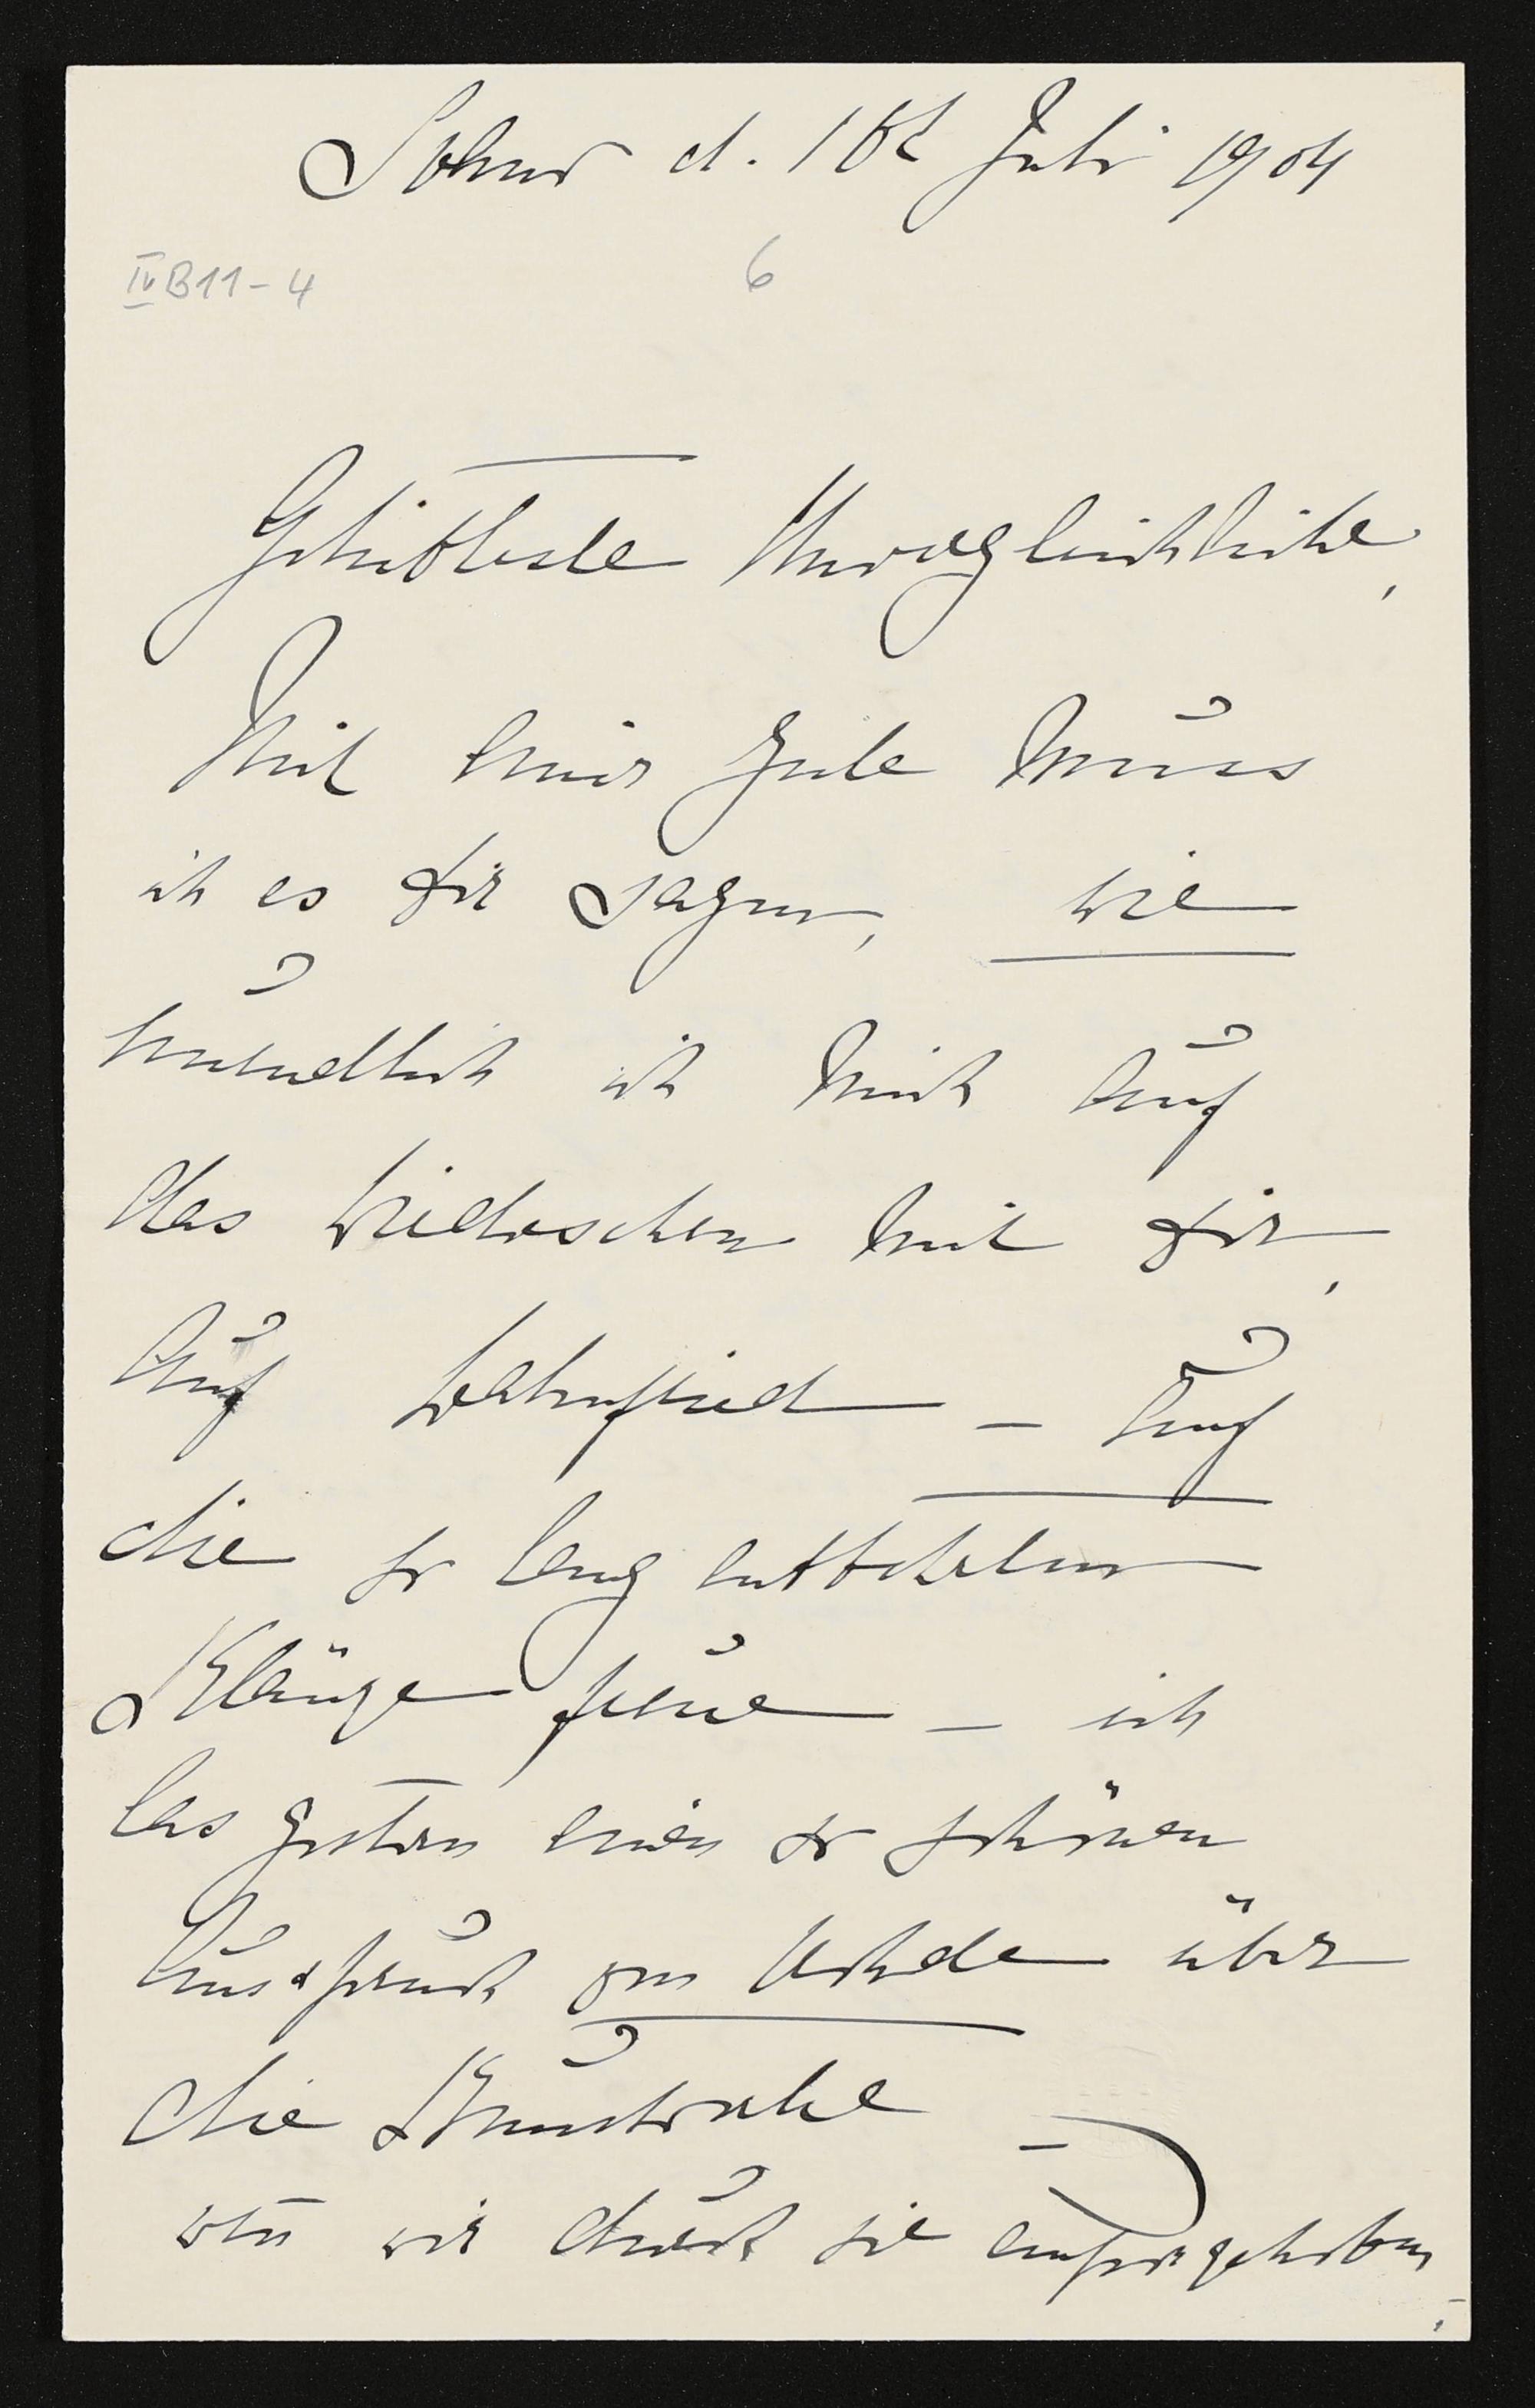 d. 16t Juli 1904
IV B11-4
6
Geliebteste Unvergleichliche,
Mit einer Zeile muss
ich es Dir sagen, wie
unendlich ich mich auf
das Wiedersehen mit Dir,
auf Wahnfried – auf
die so lang entbehrten
Klänge freue – ich
las gestern einen so schönen
Ausspruch von Uhde über
die Kunstwerke –
wenn wir durch sie emporgehoben